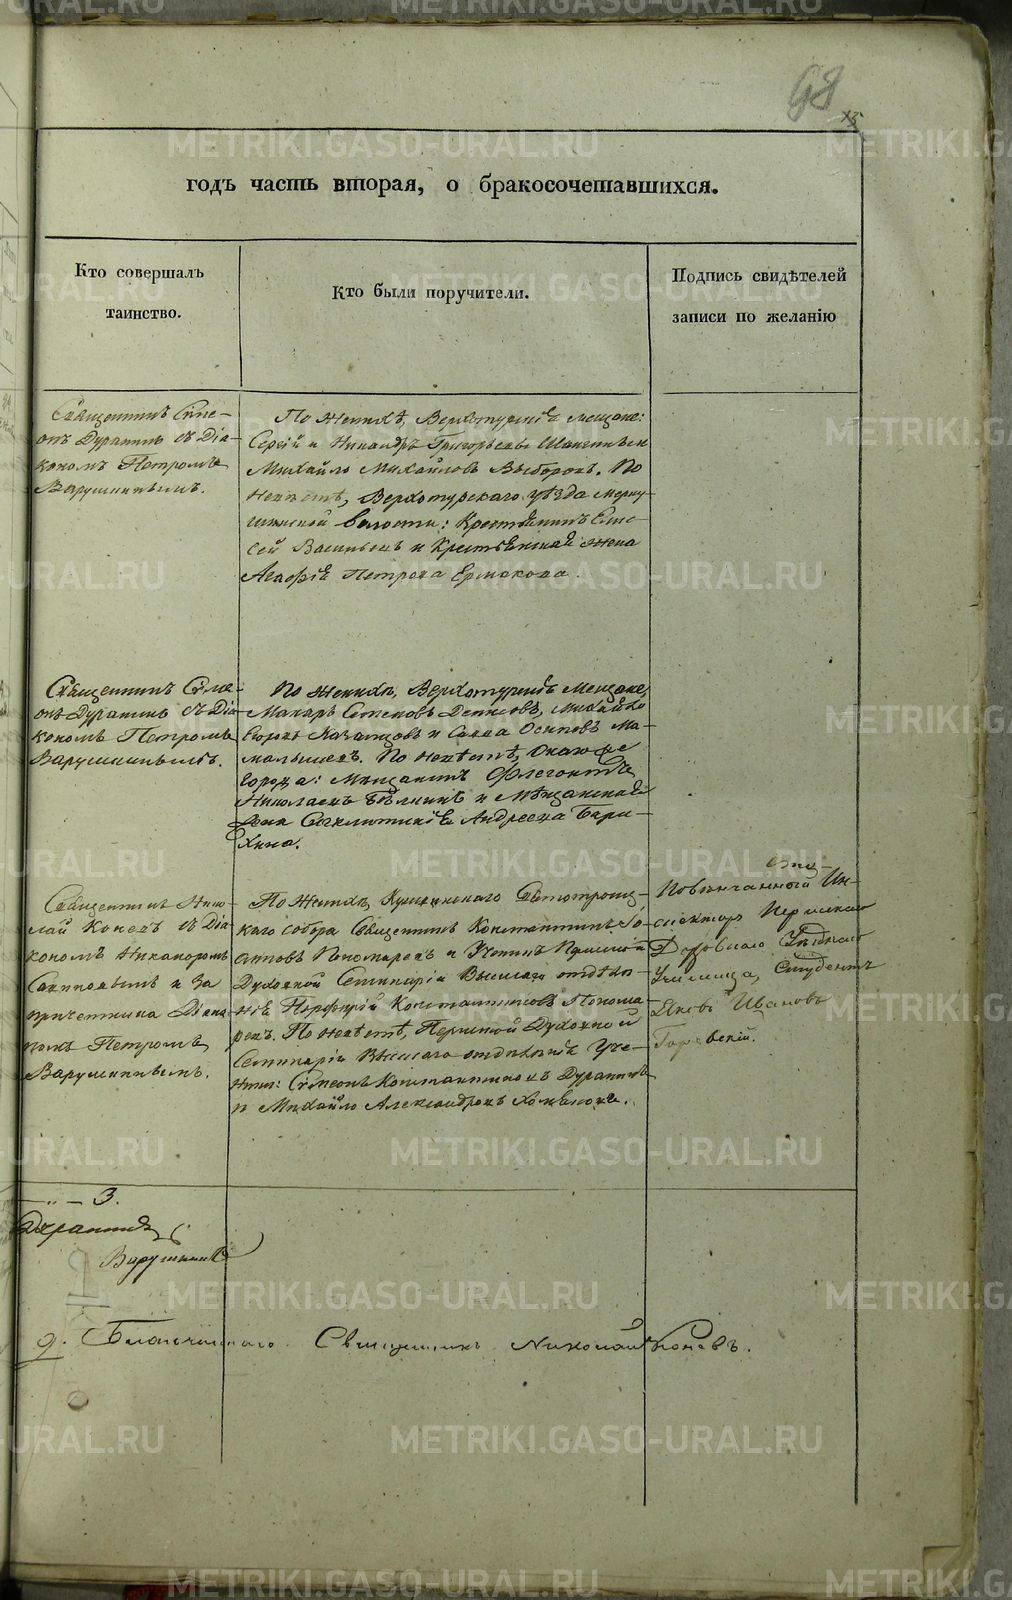 98
METRIKI.GASO-URAL.RU
годъ часть вторая, о бракосочетавшихся.
Кто совершалъ
таинство.
Кто были поручители.
Подпись свидѣтелей
записи по желанію
Священникъ Симе-
онъ Дурантинъ съ Діа-
кономъ Петромъ
Варушкинымъ.
По женихѣ, Верхотурскіе мещане:
Сергій и Никандръ Григорьевы
Михайло Михайловъ Выборовъ. По
невѣстѣ, Верхотурскаго уѣзда Мерку-
шинской волости: Крестьянинъ Ели-
сей Васильевъ и Крестьянская жена
Агафія Петрова Ермакова.
Священникъ Симе-
онъ Дурантинъ съ Діа-
кономъ Петромъ
Варушкинымъ.
По женихѣ, Верхотурскіе Мещане,
Макаръ Степановъ Денисовъ, Михайло
Егоровъ Казанцовъ и Савва Осиповъ Ма-
малышевъ. По невѣстѣ, Онаго же
города: Мѣщанинъ Флегонтъ
Николаевъ и Мѣщанская
жена Синклитикія Андреева Бари-
хина.
Священникъ Нико-
лай Коневъ съ Діа-
кономъ Никаноромъ
и за
причетника Діако-
номъ Петромъ
Варушкинымъ.
По женихѣ, Кушвинскаго Свято-троиц-
каго собора Священникъ Константинъ Іо-
анновъ Пономаревъ и Ученикъ Пермской
Духовной Семинаріи Высшаго отдѣле-
нія Порфирій Константиновъ Понома-
ревъ. По невѣстѣ, Пермской Духовной
Семинаріи Высшаго отдѣленія Уче-
ники: Симеонъ Константиновъ Дурантинъ
и Михайло Александровъ Хомяковъ.
Повѣнчанный Ин-
спекторъ Пермскаго
Духовнаго Уѣзднаго
Училища, Студентъ
Яковъ Ивановъ
3.
Дурантинъ
Варушкинъ
Благочиннаго Священникъ Николай Коневъ.